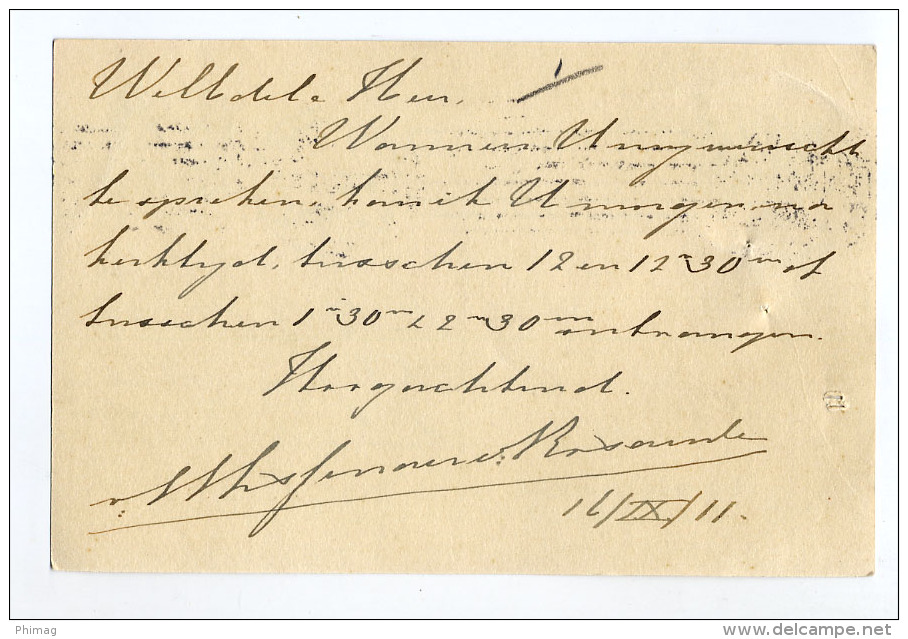 WelEdele Heer,
Wanneer U mij wenscht
te spreken, kan ik U morgen, na
kerktijd, tusschen 12 en 12 u 30 m of
tusschen 1 u 30 m & 2 u 30 m ontvangen.
Hoogachtend.
16/IX/11.
Phimag
delcampe.net